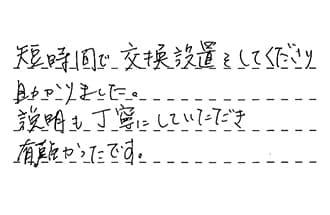 短時間で交換設置をしてくださり
助かりました。
説明も丁寧にしていただき
有難かったです。